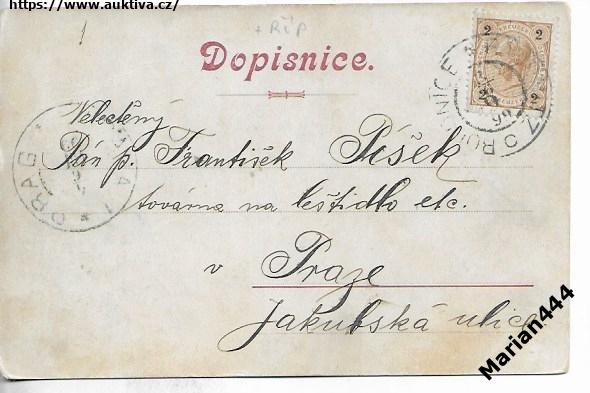 https://www.auktiva.cz/
1
+ Říp
Dopisnice.
2 2
2 2
Velectěný
Pán p. František Písek
továrna na leštidlo etc.
v Praze
Jakubská ulice
PRAG
Marian444